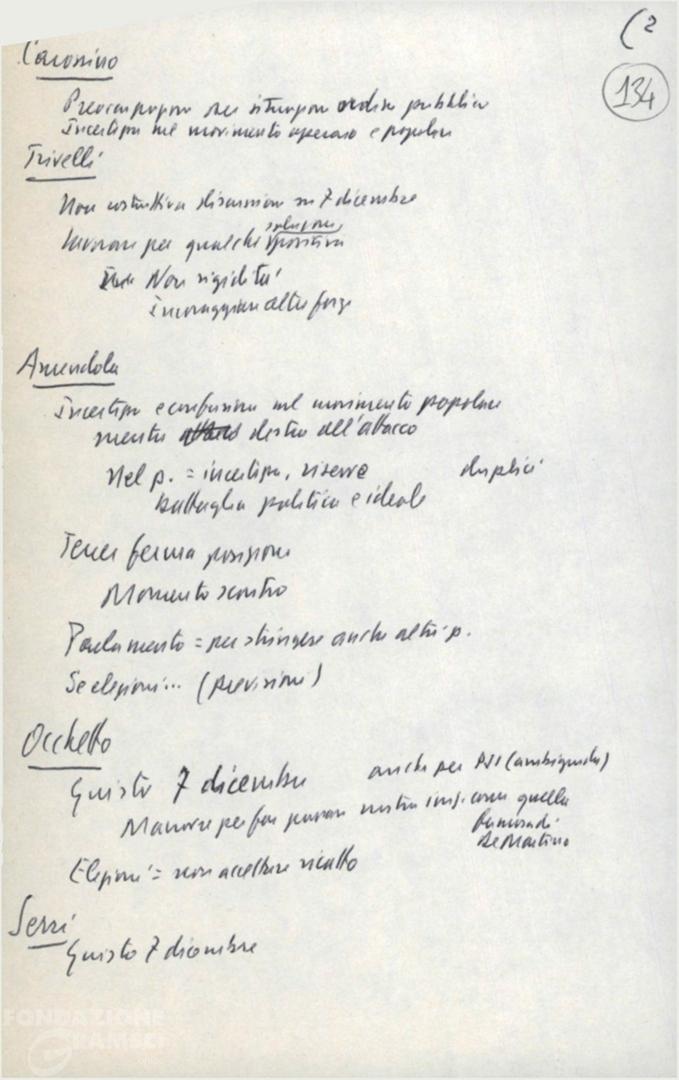 (2
134
Carossino
Preoccupazione per situazione ordine pubblico
Incertezza nel movimento operaio e popolare
Trivelli
Non costruttiva discussione su 7 dicembre
soluzione
Lavorare per qualche positiva
Non rigidità
Incoraggiare altre forze
Amendola
Incertezza e confusione nel movimento popolare
mentre destra all'attacco
Nel p. = incertezza, riserve duplici
battaglia politica e ideale
Tener ferma posizione
Momento scontro
Parlamento = per stringere anche altri p.
Se elezioni... (previsioni)
Occhetto
Giusto 7 dicembre anche per PSI (ambiguità)
Manovre per far passare nostra come quella
De Martino
Elezioni = non accettare ricatto
Serri
Giusto 7 dicembre
FONDAZIONE
GRAMSCI